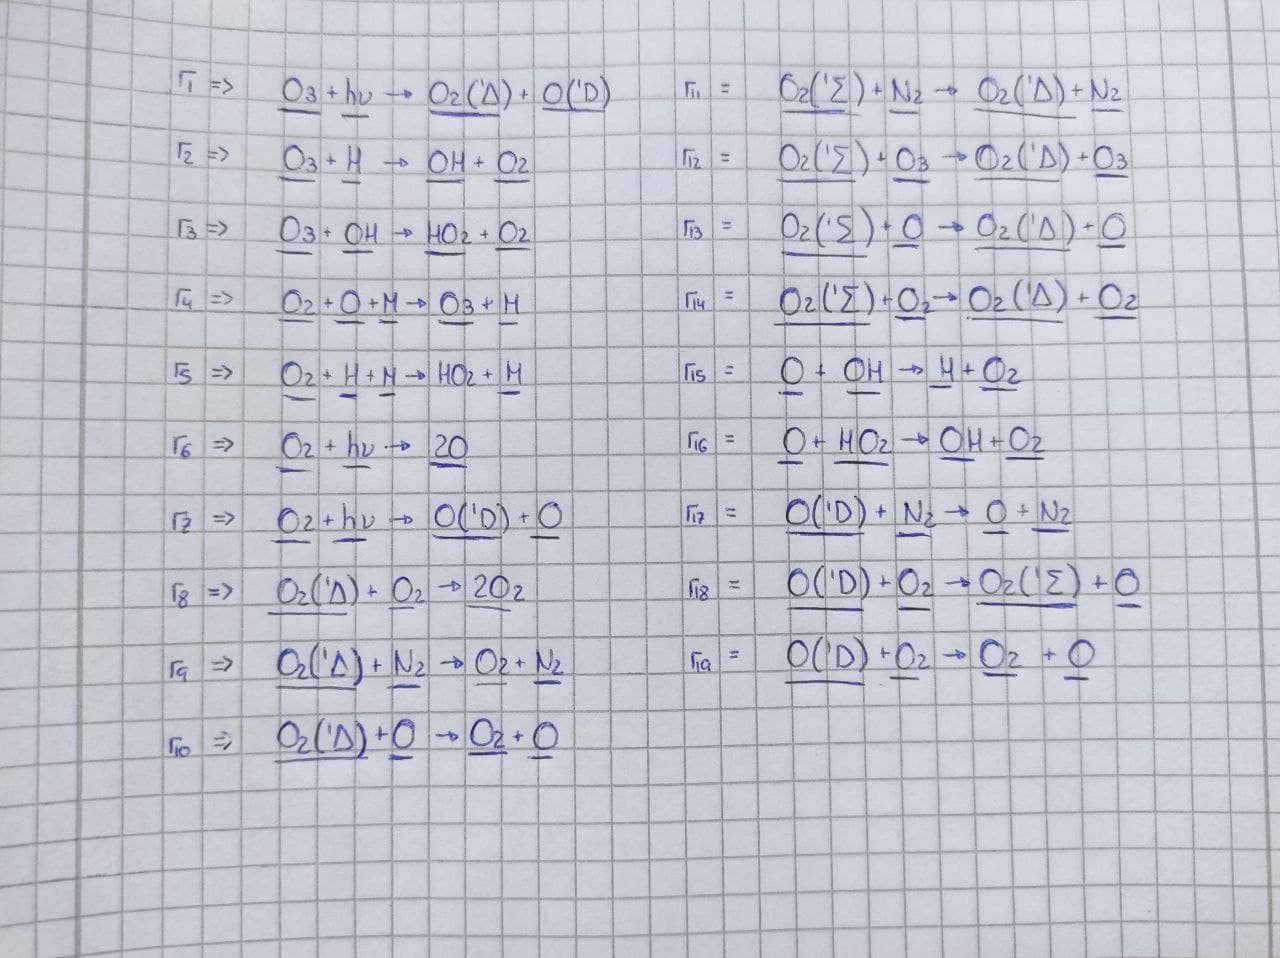 r1 => O3 + hν → O2('Δ) + O('D)
r2 => O3 + H → OH + O2
r3 => O3 + OH → HO2 + O2
r4 => O2 + O + M → O3 + M
r5 => O2 + H + M → HO2 + M
r6 => O2 + hν → 2O
r7 => O2 + hν → O('D) + O
r8 => O2('Δ) + O2 → 2O2
r9 => O2('Δ) + N2 → O2 + N2
r10 => O2('Δ) + O → O2 + O
r11 = O2('Σ) + N2 → O2('Δ) + N2
r12 = O2('Σ) + O3 → O2('Δ) + O3
r13 = O2('Σ) + O → O2('Δ) + O
r14 = O2('Σ) + O2 → O2('Δ) + O2
r15 = O + OH → H + O2
r16 = O + HO2 → OH + O2
r17 = O('D) + N2 → O + N2
r18 = O('D) + O2 → O2('Σ) + O
r19 = O('D) + O2 → O2 + O